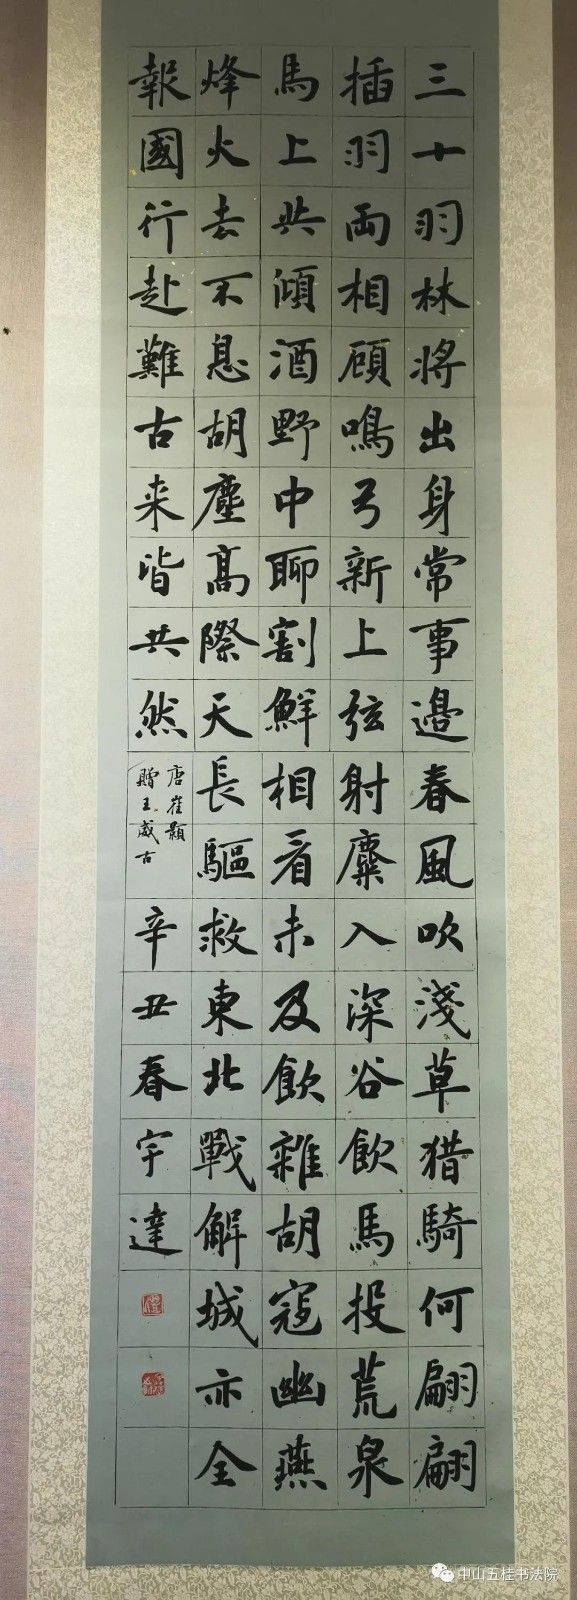 三十羽林將出身常事邊春風吹淺草猎騎何翩翩
插羽兩相顧鳴弓新上弦射麋入深谷飲馬投荒泉
馬上共傾酒野中聊割鮮相看未及飲雜胡寇幽燕
烽火去不息胡塵高際天長驅救東北戰解城亦全
報國行赴難古来皆共然
唐崔顥
贈王威古
辛丑春宇達
中山五桂书法院